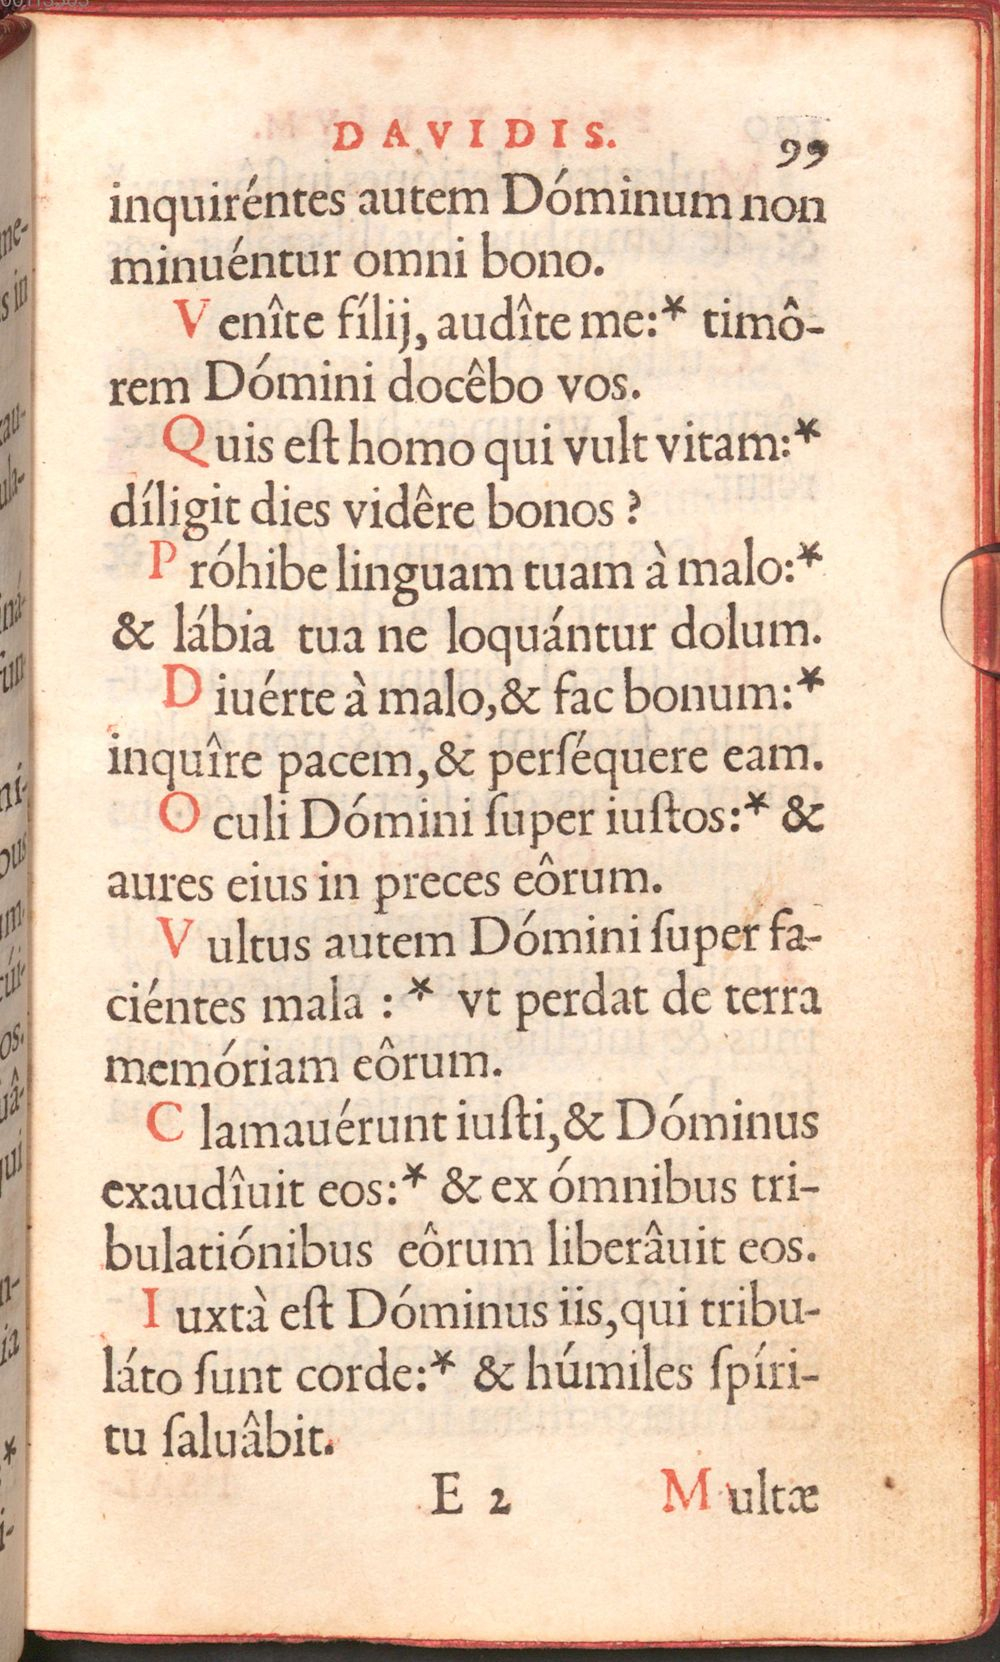 DAVIDIS. 99
inquiréntes autem Dóminum non
minuéntur omni bono.
Venîte fílij, audîte me:* timô-
rem Dómini docêbo vos.
Quis eſt homo qui vult vitam:*
díligit dies vidêre bonos ?
Próhibe linguam tuam à malo:*
& lábia tua ne loquántur dolum.
Diuérte à malo,& fac bonum:*
inquîre pacem,& perſéquere eam.
Oculi Dómini ſuper iuſtos:* &
aures eius in preces eôrum.
Vultus autem Dómini ſuper fa-
ciéntes mala : * vt perdat de terra
memóriam eôrum.
Clamauérunt iuſti,& Dóminus
exaudîuit eos:* & ex ómnibus tri-
bulatiónibus eôrum liberâuit eos.
Iuxtà eſt Dóminus iis,qui tribu-
láto ſunt corde:* & húmiles ſpíri-
tu ſaluâbit.
E 2 Multæ